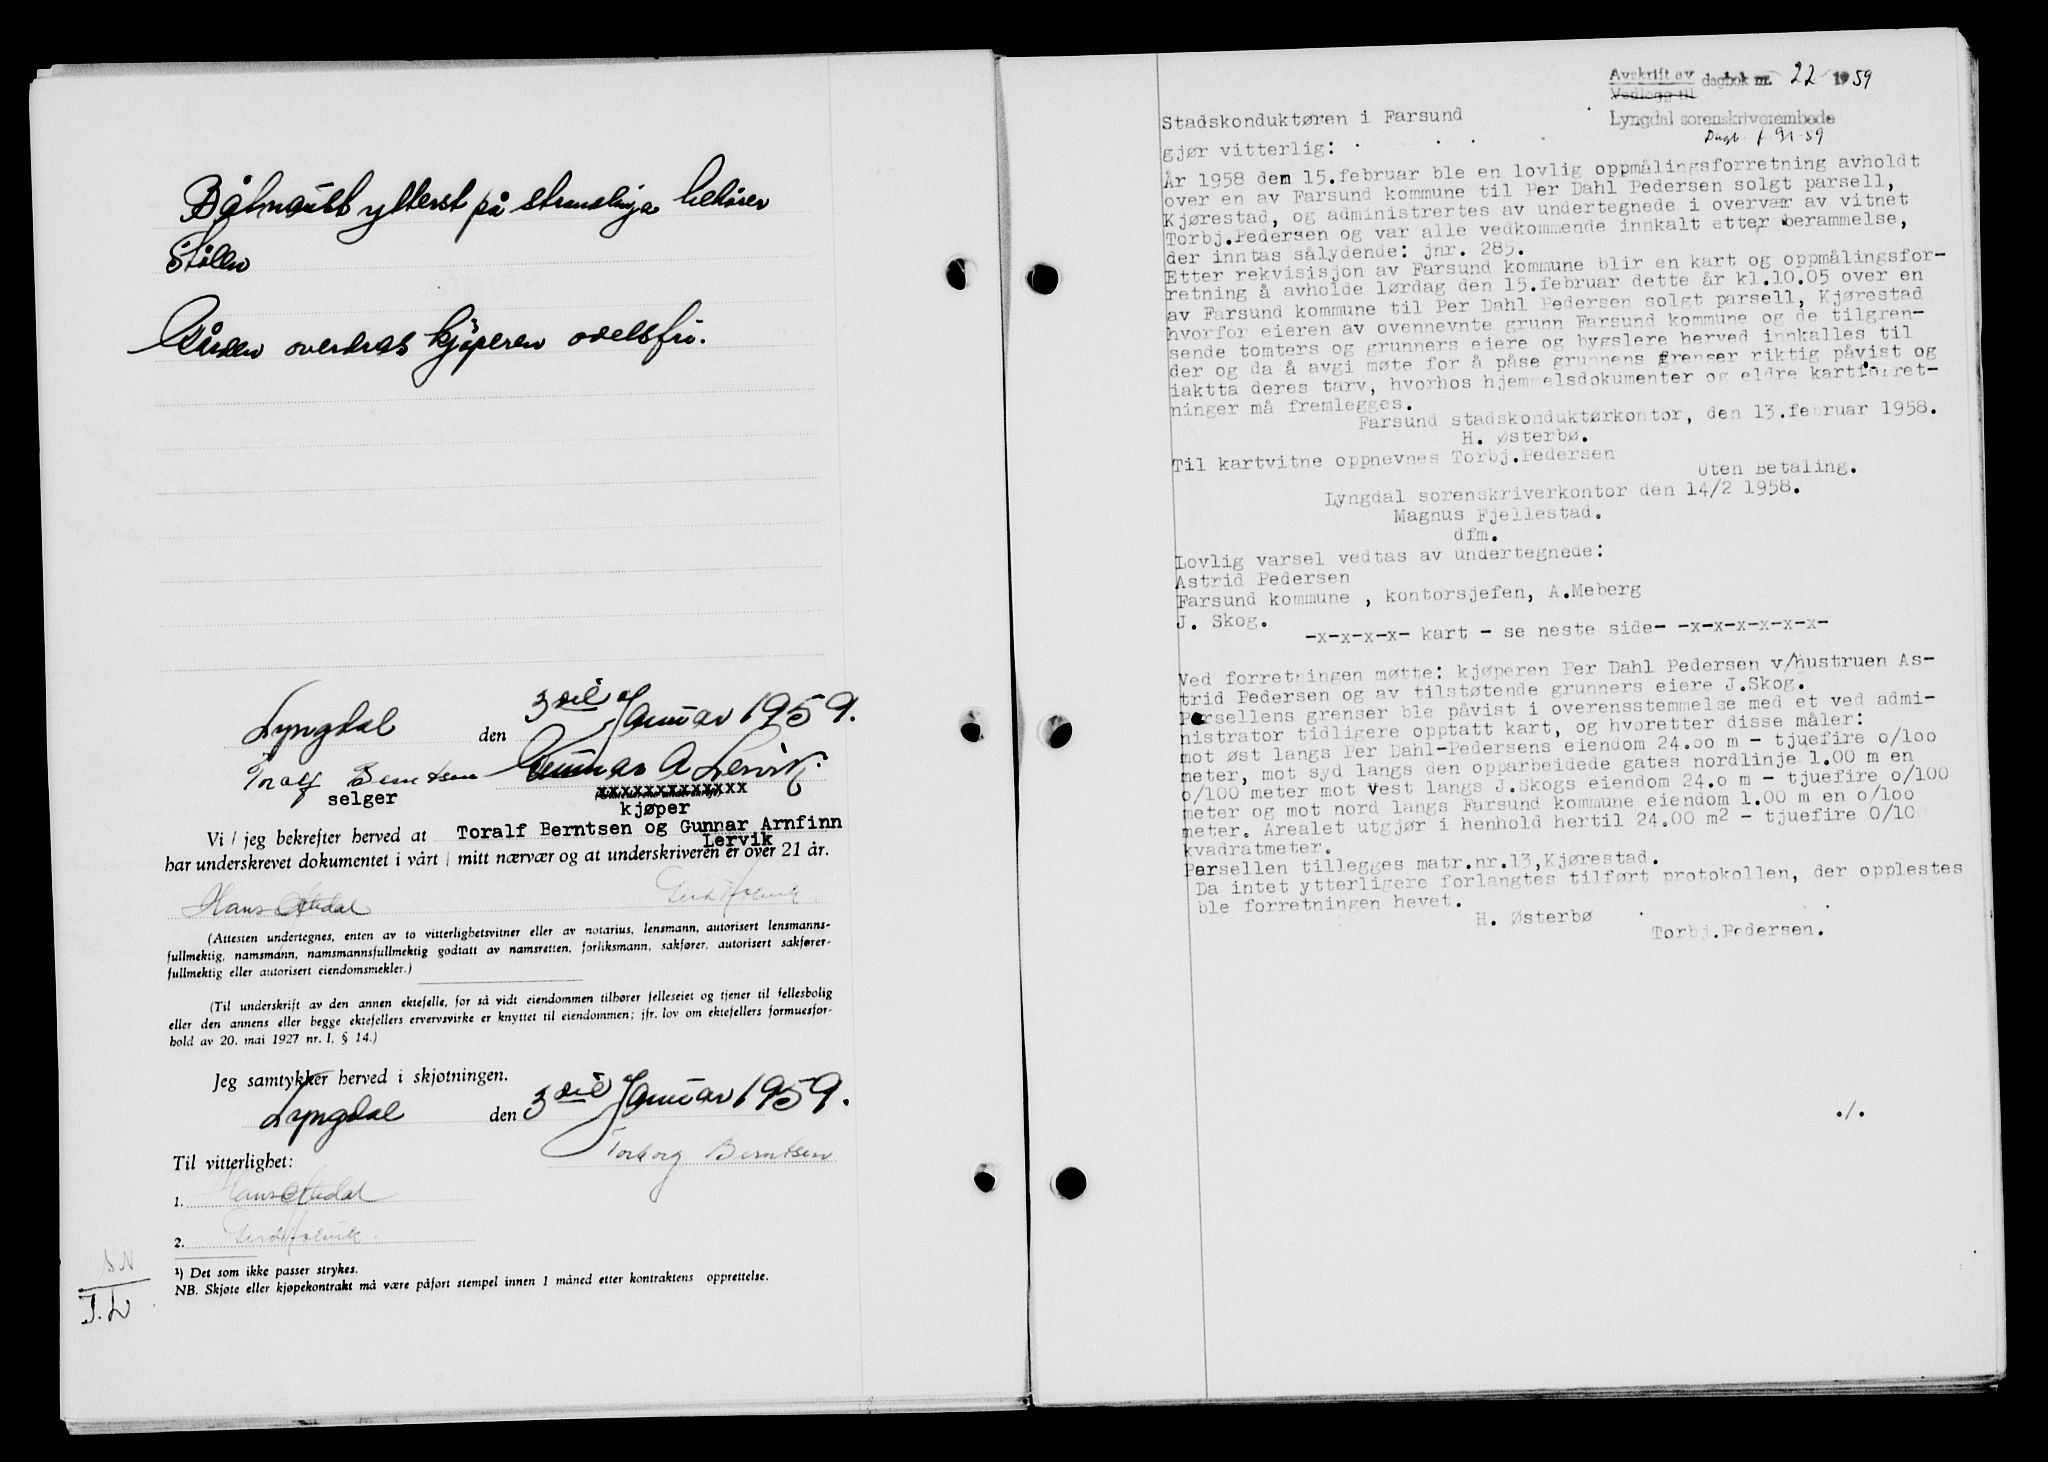 Båtnaust ytterst på strandlinja tilhører
Støllen
Gården overdras kjøperen odelsfri.
Lyngdal den 3die Januar 1959.
Toralf Berntsen Gunnar A Lervik.
selger xxxxxxxxxxxxx
kjøper
Vi / jeg bekrefter herved at Toralf Berntsen og Gunnar Arnfinn
Lervik
har underskrevet dokumentet i vårt / mitt nærvær og at underskriveren er over 21 år.
Hans
(Attesten undertegnes, enten av to vitterlighetsvitner eller av notarius, lensmann, autorisert lensmanns-
fullmektig, namsmann, namsmannsfullmektig godtatt av namsretten, forliksmann, sakfører, autorisert sakfører-
fullmektig eller autorisert eiendomsmekler.)
(Til underskrift av den annen ektefelle, for så vidt eiendommen tilhører felleseiet og tjener til fellesbolig
eller den annens eller begge ektefellers ervervsvirke er knyttet til eiendommen; jfr. lov om ektefellers formuesfor-
hold av 20. mai 1927 nr. 1, § 14.)
Jeg samtykker herved i skjøtningen.
Lyngdal den 3die Januar 1959.
Torborg Berntsen
Til vitterlighet:
1. Hans
2.
¹) Det som ikke passer strykes.
NB. Skjøte eller kjøpekontrakt må være påført stempel innen 1 måned etter kontraktens opprettelse.
S.N
T.L
Avskrift av dagbok nr. 22 1959
Vedlegg til
Lyngdal sorenskriverembede
Dagb. f. 91-59
Stadskonduktøren i Farsund
gjør vitterlig:
År 1958 den 15.februar ble en lovlig oppmålingsforretning avholdt
over en av Farsund kommune til Per Dahl Pedersen solgt parsell,
Kjørestad, og administrertes av undertegnede i overvær av vitnet
Torbj.Pedersen og var alle vedkommende innkalt etter berammelse,
der inntas sålydende: jnr. 285.
Etter rekvisisjon av Farsund kommune blir en kart og oppmålingsfor-
retning å avholde lørdag den 15.februar dette år kl.10.05 over en
av Farsund kommune til Per Dahl Pedersen solgt parsell, Kjørestad
hvorfor eieren av ovennevnte grunn Farsund kommune og de tilgren-
sende tomters og grunners eiere og bygslere herved innkalles til
der og da å avgi møte for å påse grunnens grenser riktig påvist og
iaktta deres tarv, hvorhos hjemmelsdokumenter og eldre kartforret-
ninger må fremlegges.
Farsund stadskonduktørkontor, den 13.februar 1958.
H. Østerbø.
Til kartvitne oppnevnes Torbj.Pedersen
Uten Betaling.
Lyngdal sorenskriverkontor den 14/2 1958.
Magnus Fjellestad.
dfm.
Lovlig varsel vedtas av undertegnede:
Astrid Pedersen
Farsund kommune , kontorsjefen, A.Meberg
J. Skog.
-x-x-x-x- kart - se neste side- -x-x-x-x-x-x-
Ved forretningen møtte: kjøperen Per Dahl Pedersen v/hustruen As-
trid Pedersen og av tilstøtende grunners eiere J.Skog.
Parsellens grenser ble påvist i overensstemmelse med et ved admi-
nistrator tidligere opptatt kart, og hvoretter disse måler:
mot øst langs Per Dahl-Pedersens eiendom 24.oo m - tjuefire o/100
meter, mot syd langs den opparbeidede gates nordlinje 1.00 m en
o/100 meter mot vest langs J.Skogs eiendom 24.o m - tjuefire o/100
meter og mot nord langs Farsund kommune eiendom 1.00 m en o/100
meter. Arealet utgjør i henhold hertil 24.00 m2 - tjuefire 0/10
kvadratmeter.
Parsellen tillegges matr.nr.13,Kjørestad.
Da intet ytterligere forlangtes tilført protokollen, der opplestes
ble forretningen hevet.
H. Østerbø
Torbj.Pedersen.
./.